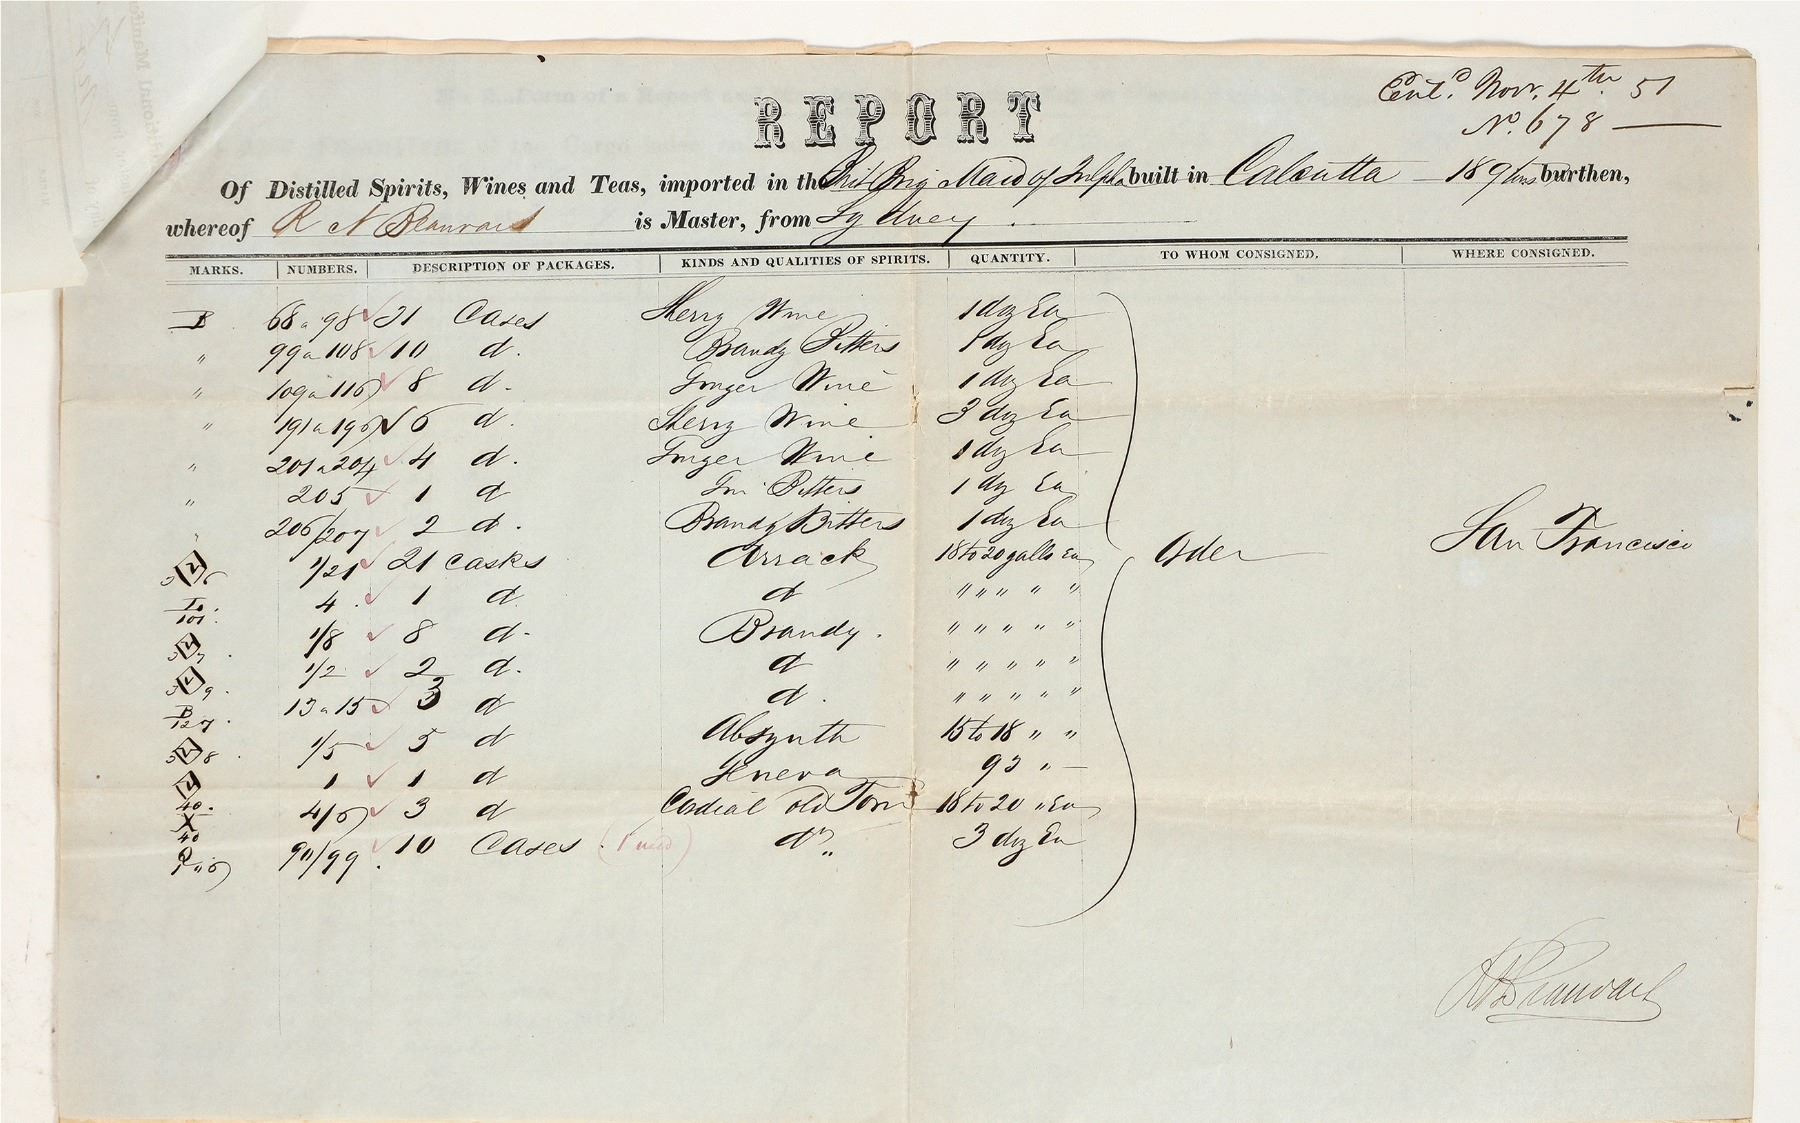 Cert.d Nov. 4th 51
No. 678
REPORT
Of Distilled Spirits, Wines and Teas, imported in the Brit Brig Maid of Julpha built in Calcutta 189 tons burthen,
whereof R N Beauvais is Master, from Sydney.
MARKS. NUMBERS. DESCRIPTION OF PACKAGES. KINDS AND QUALITIES OF SPIRITS. QUANTITY. TO WHOM CONSIGNED. WHERE CONSIGNED.
B 68 a 98 31 Cases Sherry Wine 1 doz Ea
" 99 a 108 10 d. Brandy Bitters 1 doz Ea
" 109 a 116 8 d. Ginger Wine 1 doz Ea
" 191 a 196 6 d. Sherry Wine 3 doz Ea
" 201 a 204 4 d. Ginger Wine 1 doz Ea
" 205 1 d Gin Bitters 1 doz Ea
" 206/207 2 d. Brandy Bitters 1 doz Ea
2 1/21 21 casks Arrack 18 to 20 galls Ea Oder San Francisco
101 4 1 d. d " " " " "
1/8 8 d. Brandy. " " " " "
9. 1/2 2 d. d " " " " "
B 127. 13 a 15 3 d d. " " " " "
2 8. 1/5 5 d Absynth 15 to 18 " "
2 1 1 d Geneva 93 "
40. 4/6 3 d Cordial old Tom 18 to 20 " Ea
40 90/99. 10 Cases do " 3 doz Ea
R N Beauvais